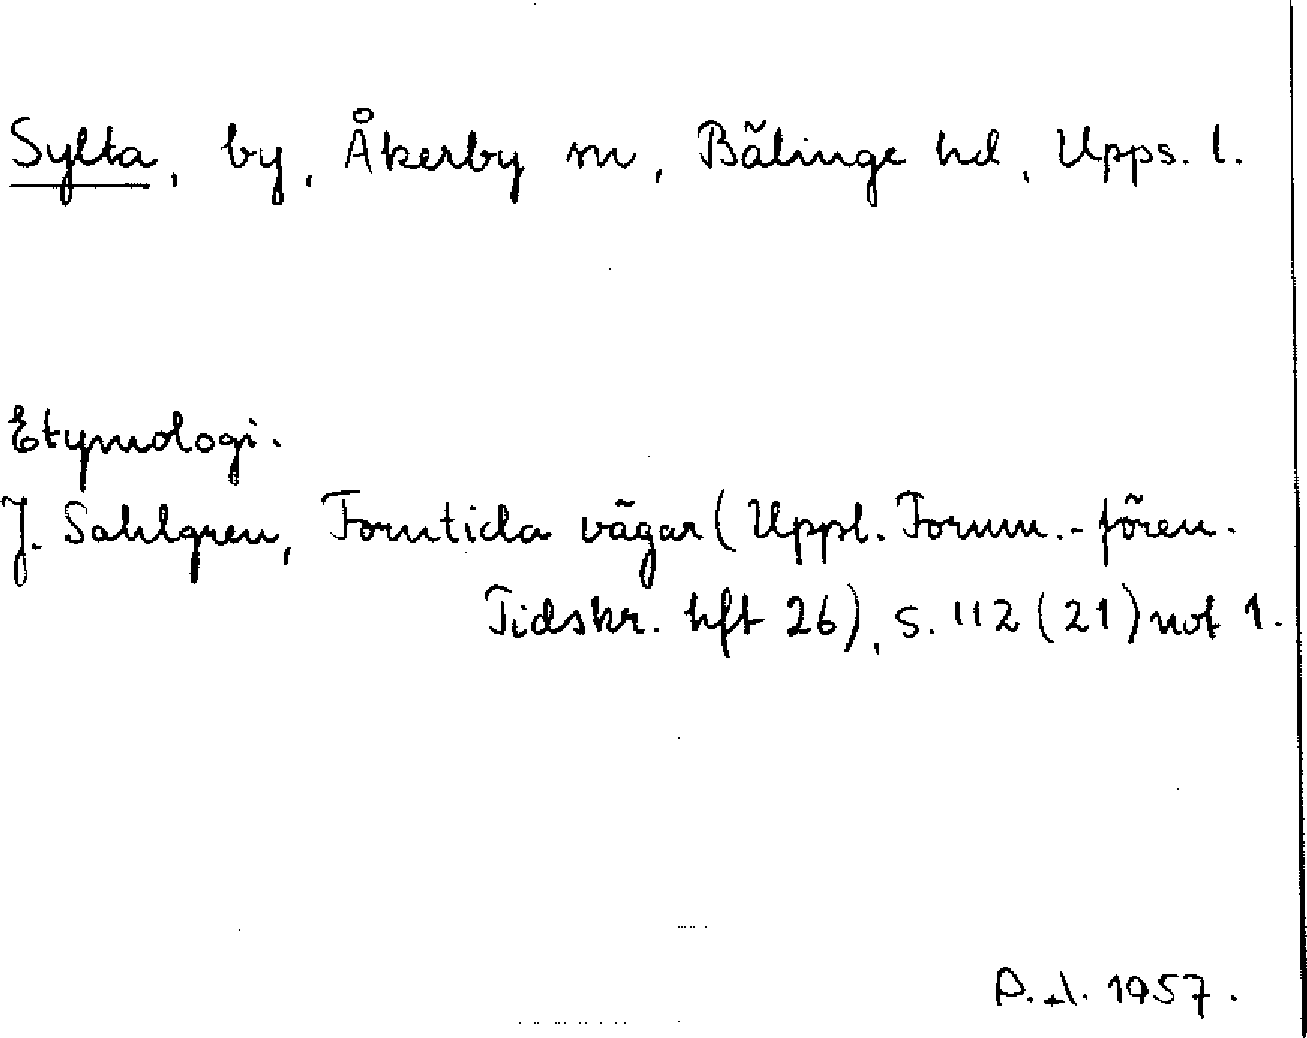 Sylta, by, Åkerby sn, Bälinge hd, Upps. l.
Etymologi.
J. Sahlgren, Forntida vägar (Uppl. Fornm.-fören.
Tidskr. hft 26), s. 112 (21) not 1.
1957.